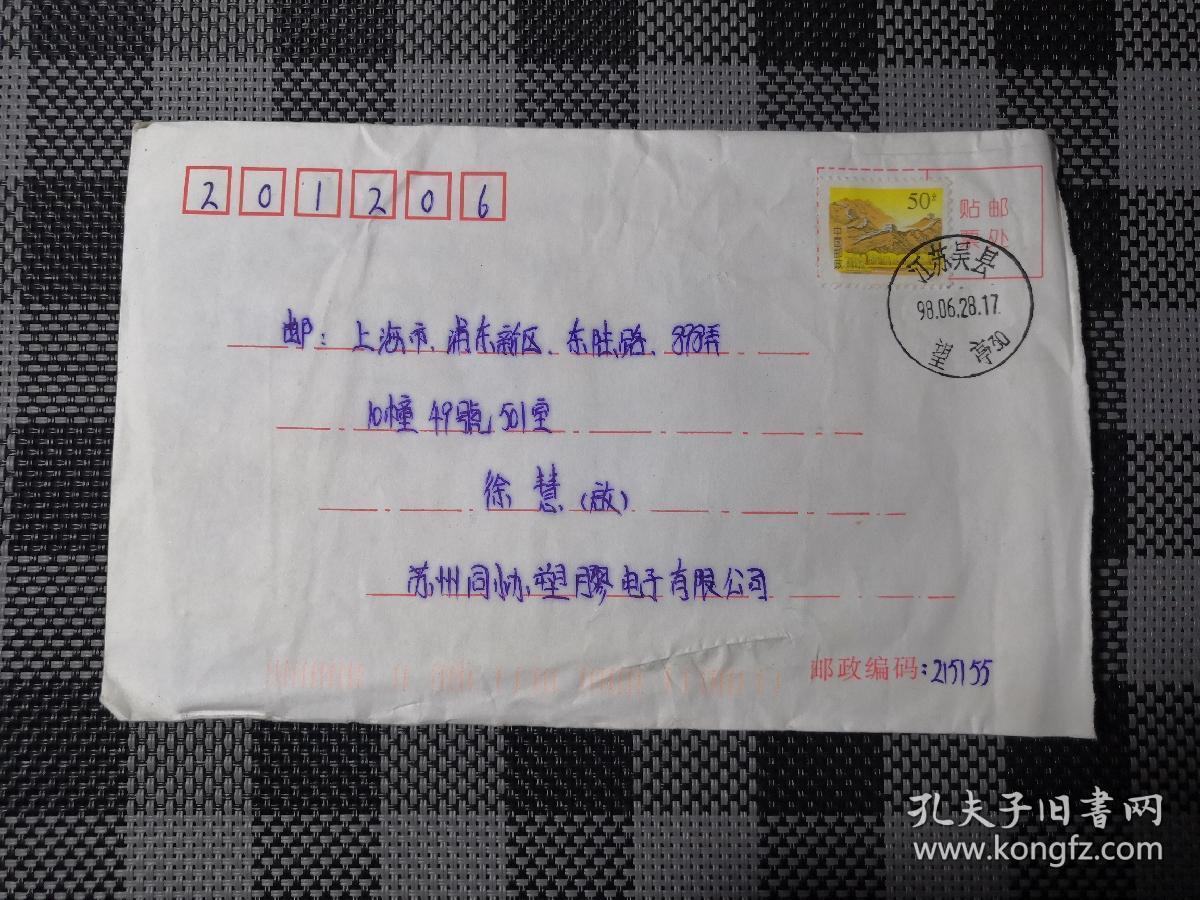 201206
50分
中国邮政
贴邮
票处
江苏吴县
98.06.28.17
亭30
邮：上海市、浦东新区、东陆路、393弄
10幢 49號, 501室
徐 慧（啟）
苏州同协塑膠电子有限公司
邮政编码：215155
孔夫子旧書网
www.kongfz.com